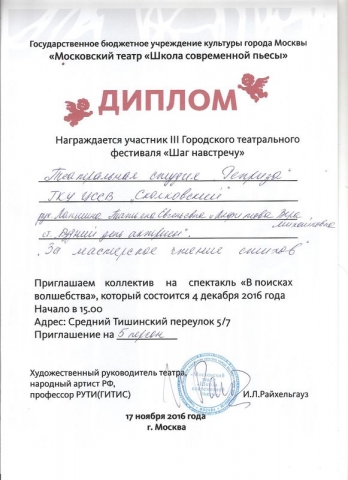 Государственное бюджетное учреждение культуры города Москвы
«Московский театр «Школа современной пьесы»
ДИПЛОМ
Награждается участник III Городского театрального
фестиваля «Шаг навстречу»
"Театральная студия "Реприза"
ГКУ ЦССВ "Сколковский"
рук. Татьяна Вера
Михайловна
"За мастерское чтение стихов"
Приглашаем коллектив на спектакль «В поисках
волшебства», который состоится 4 декабря 2016 года
Начало в 15.00
Адрес: Средний Тишинский переулок 5/7
Приглашение на 5 персон
Художественный руководитель театра,
народный артист РФ,
профессор РУТИ(ГИТИС)
И.Л.Райхельгауз
17 ноября 2016 года
г. Москва